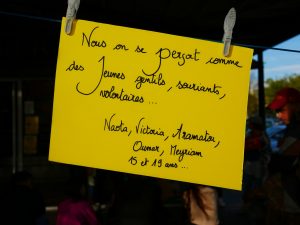 Nous on se perçoit comme
des Jeunes gentils, souriants,
volontaires ...
Naota, Victoria, Aramatou,
Oumar, Meyriam
15 et 19 ans ...